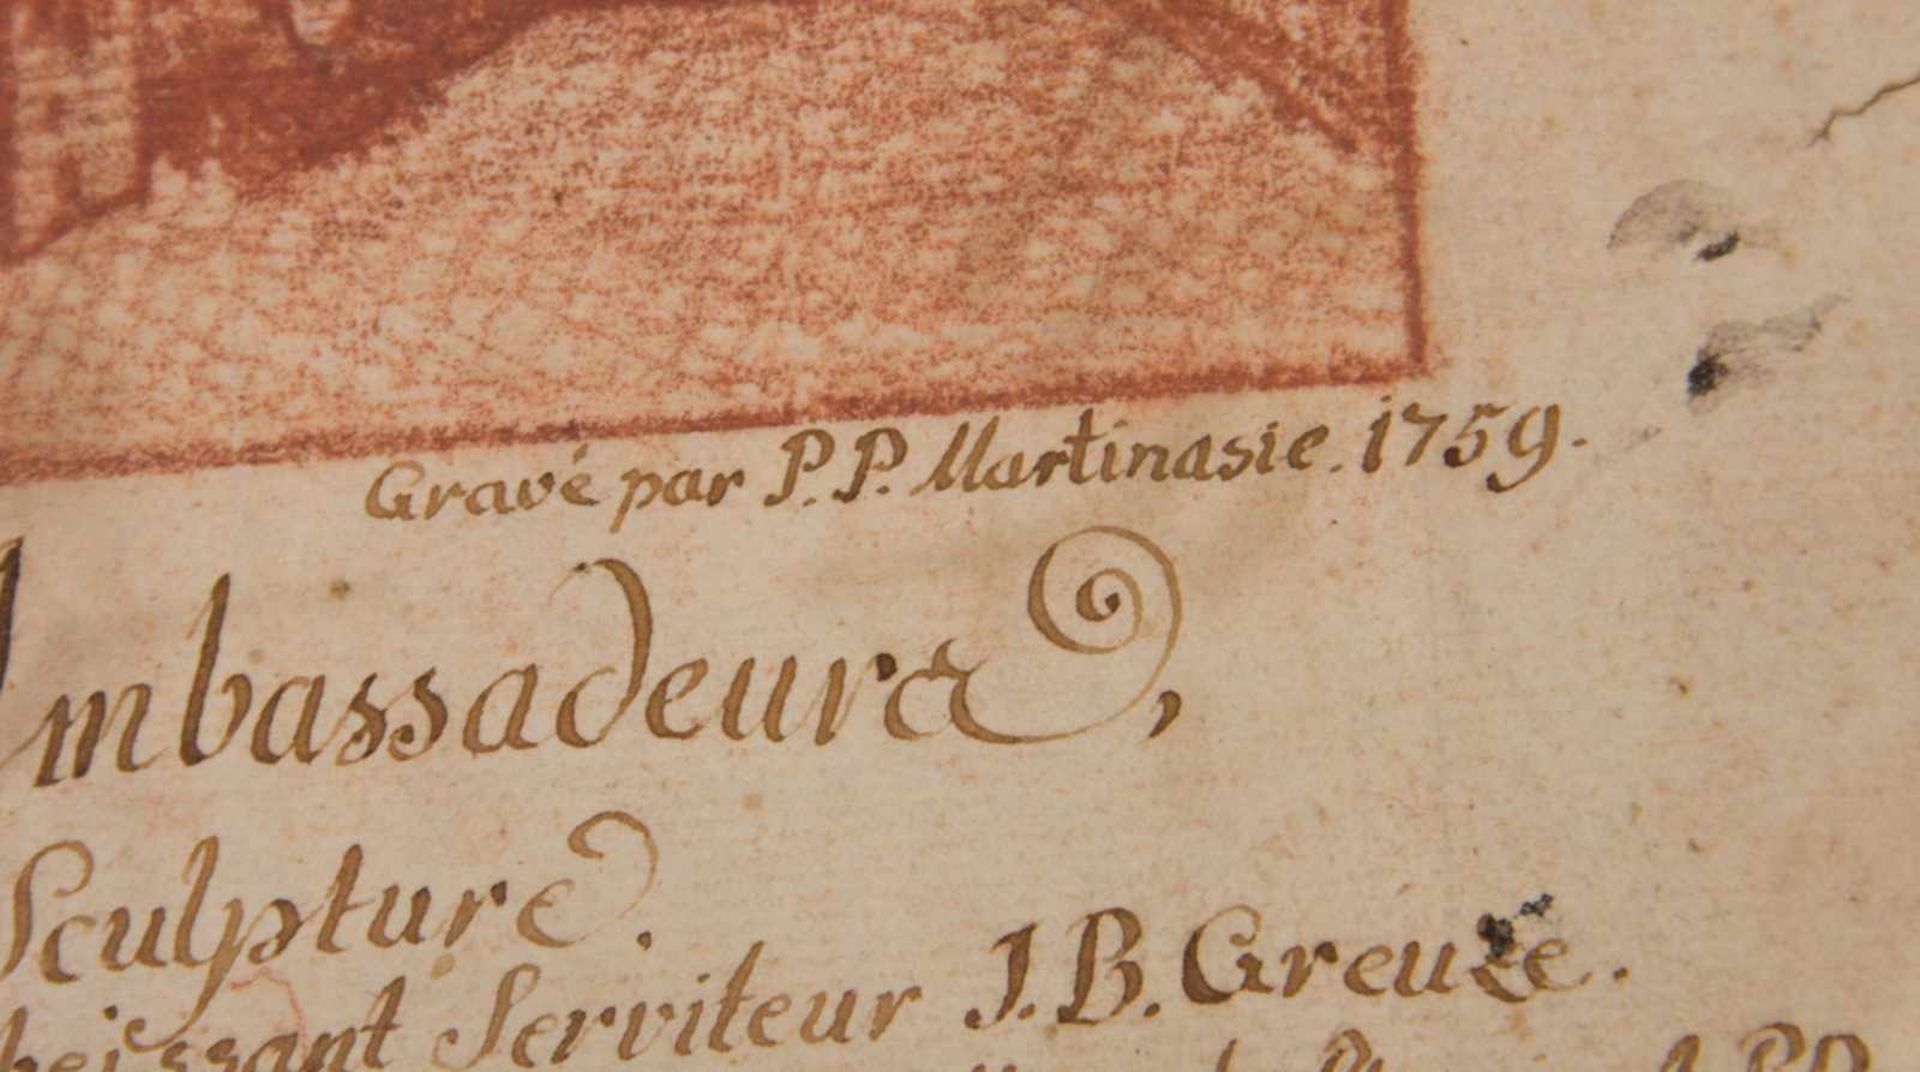 Gravé par P.P. Martinasie. 1759.
Ambassadeurs,
Sculpture.
beissant Serviteur J.B. Greuze.